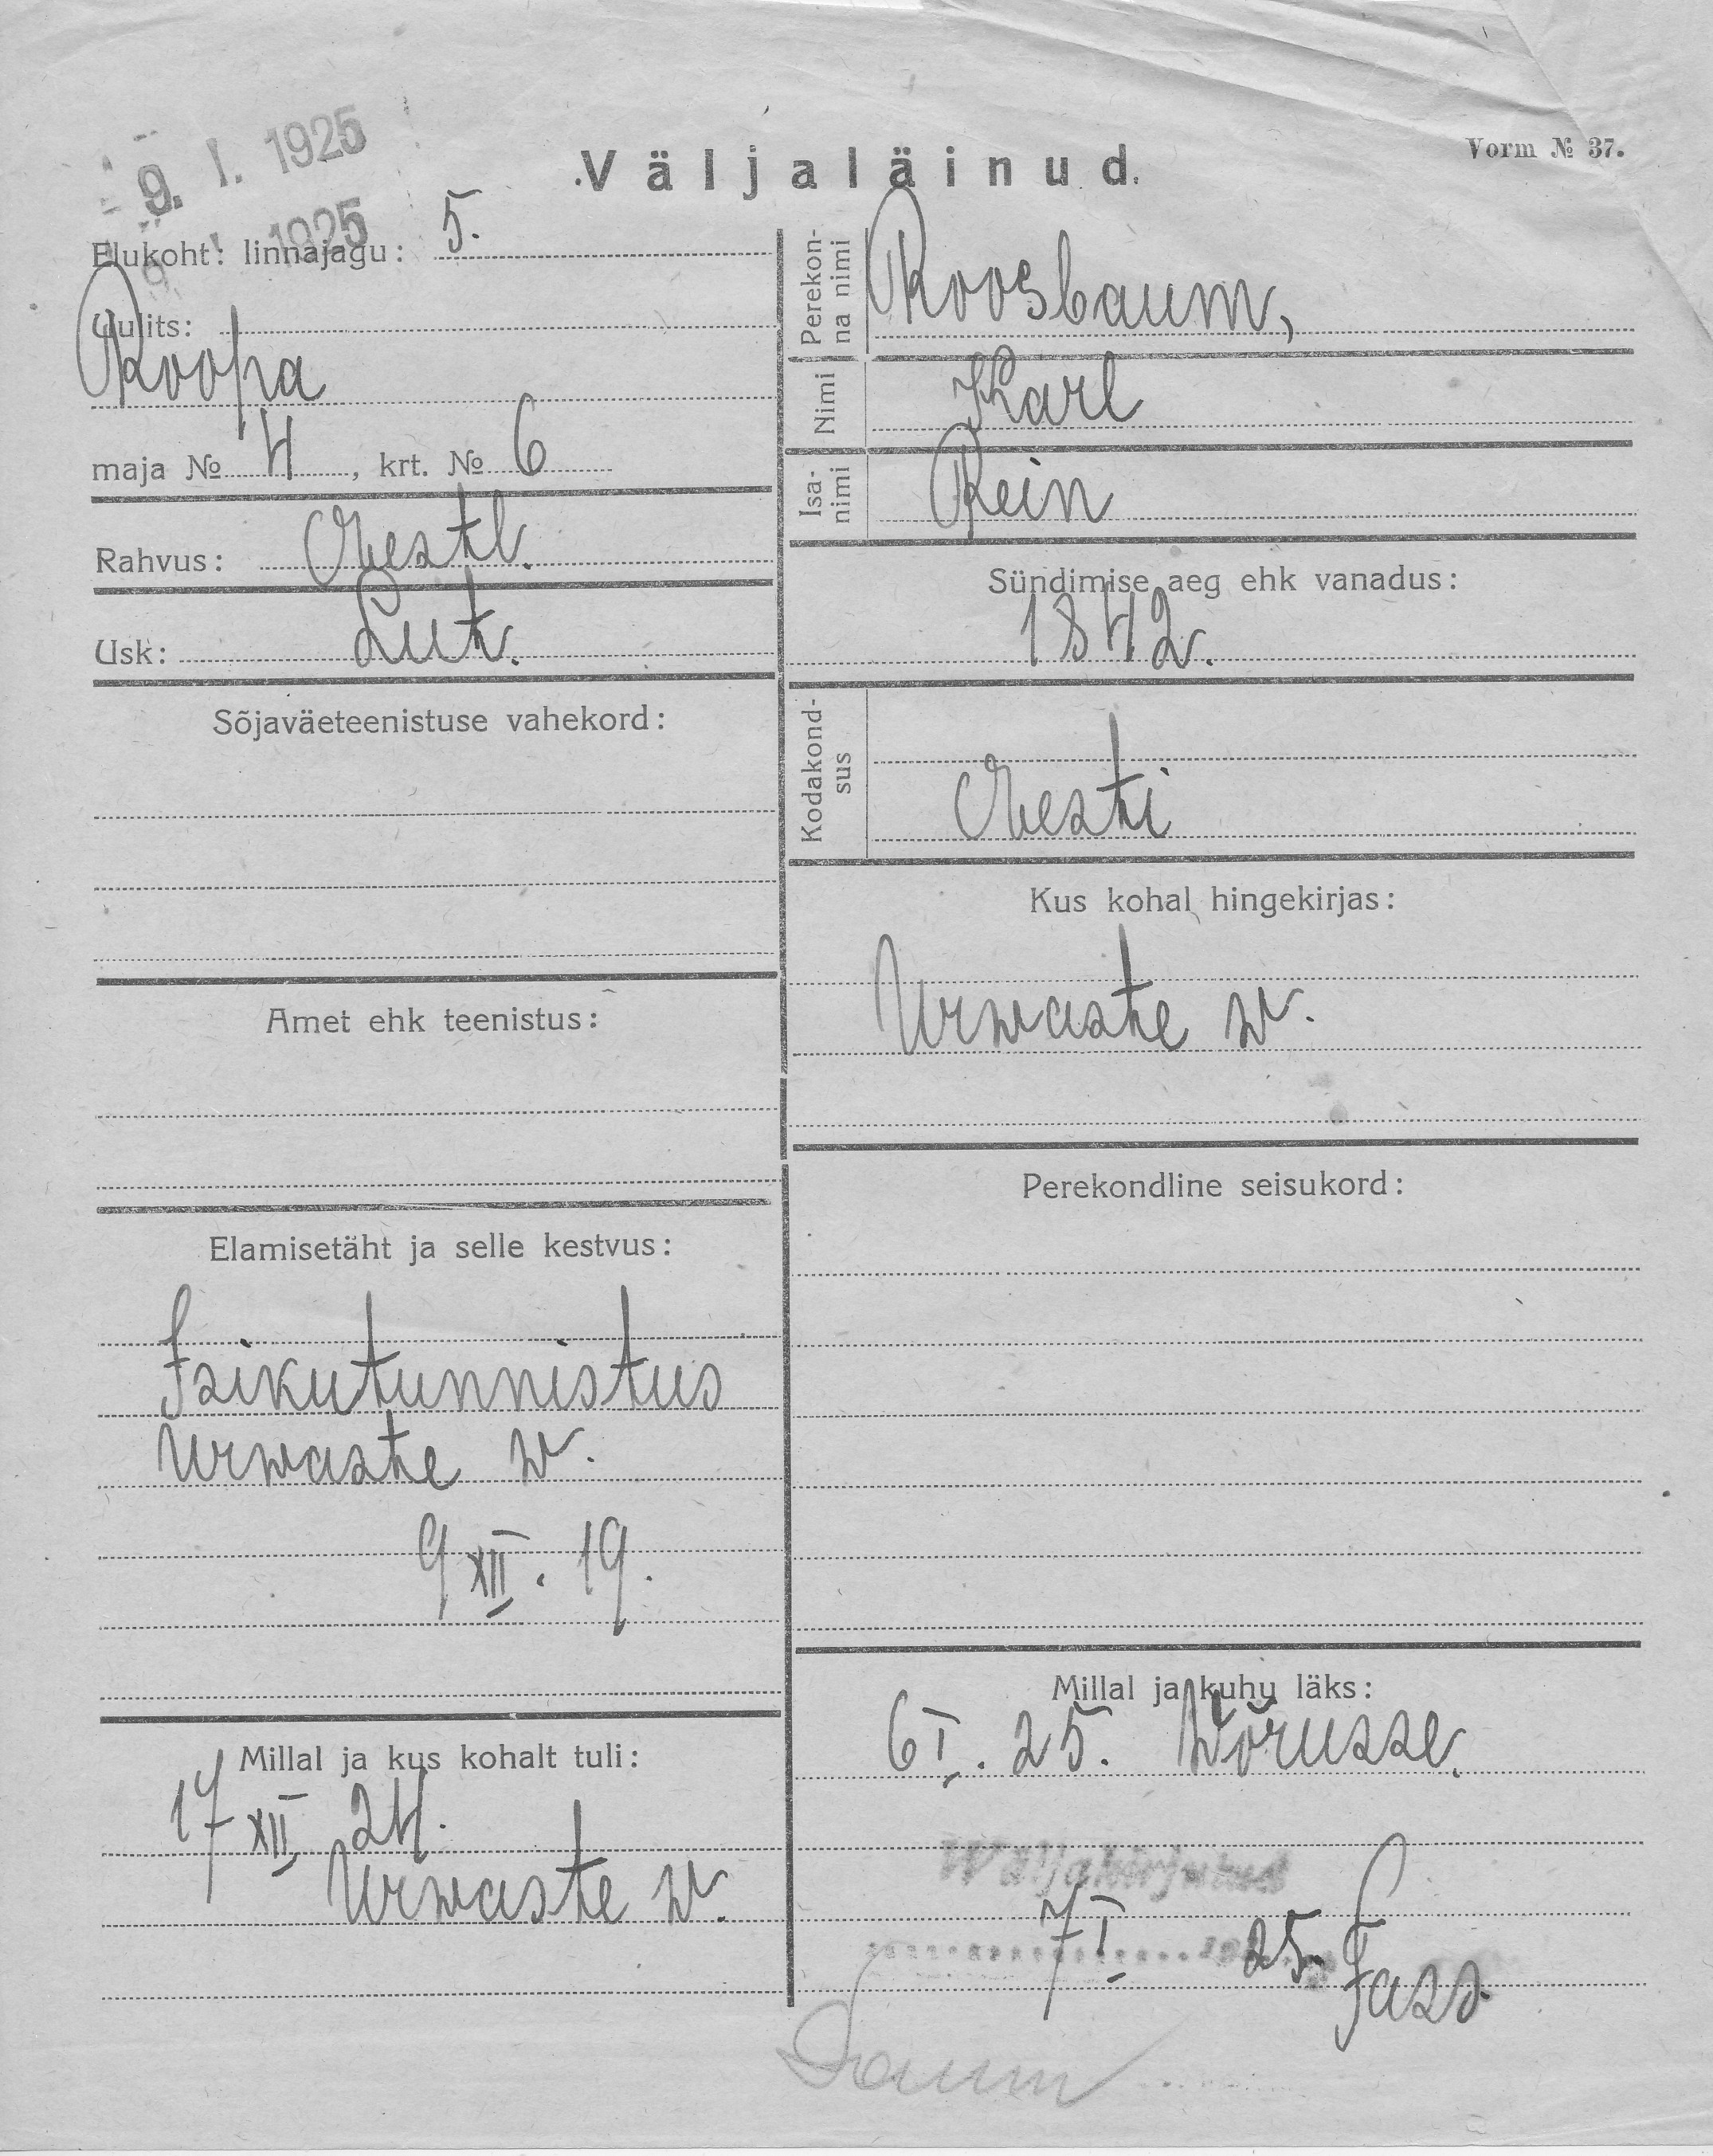 9. I. 1925
1925
Väljaläinud.
Vorm № 37.
Elukoht: linnajagu: 5.
Uulits:
Roopa
maja № 4, krt. № 6
Rahvus: Eestl.
Usk: Lut.
Sõjaväeteenistuse vahekord:
Amet ehk teenistus:
Elamisetäht ja selle kestvus:
Isikutunnistus
Urwaste w.
9 XII. 19.
Millal ja kus kohalt tuli:
17 XII 24.
Urwaste w.
Perekon-
na nimi
Roosbaum,
Nimi Karl
Isa-
nimi
Rein
Sündimise aeg ehk vanadus:
1842.
Kodakond-
sus
Eesti
Kus kohal hingekirjas:
Urwaste w.
Perekondline seisukord:
Millal ja kuhu läks:
6 I. 25. Wõrusse.
Wäljakirjutud
7 I 25.